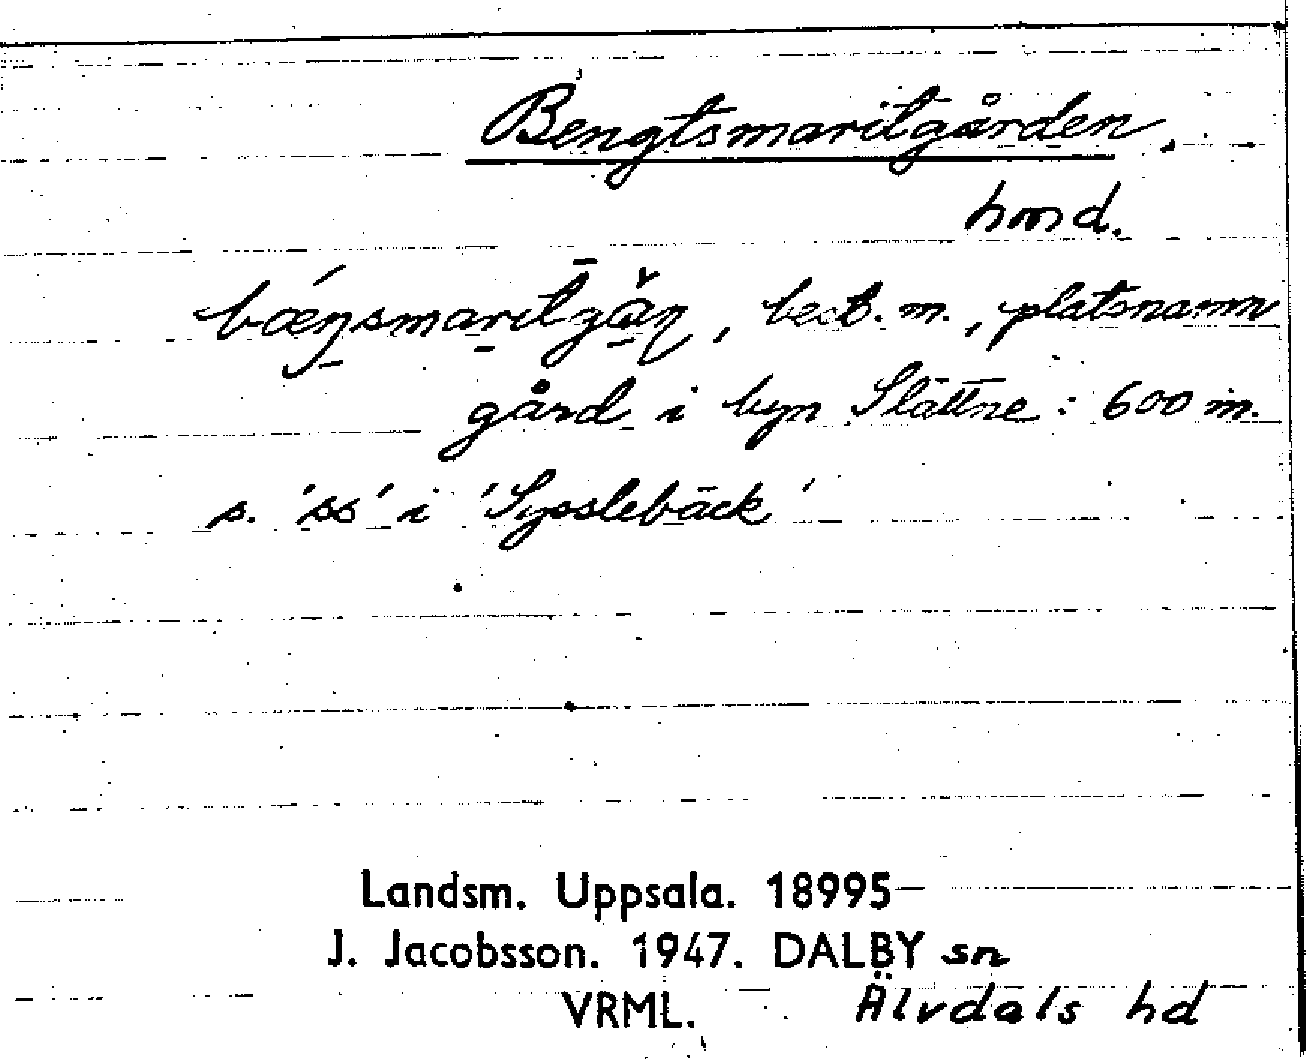 Bengtsmaritgården.
hmd.
best. m., platsnamn
gård i byn Slättne: 600 m.
s. 'ss' i 'Sysslebäck'
Landsm. Uppsala. 18995
J. Jacobsson. 1947. DALBY sn
VRML. Älvdals hd